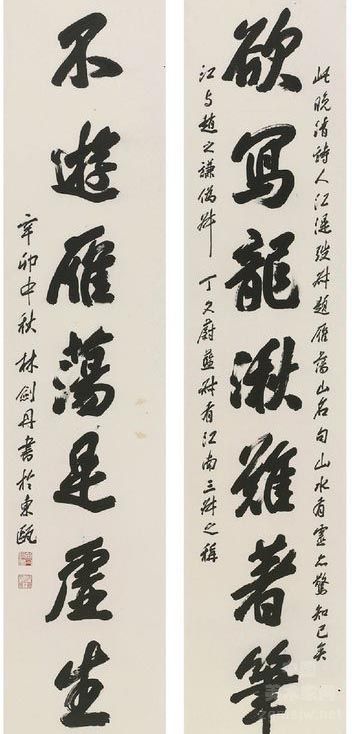 欲寫龍湫難著筆
此晚清詩人江湜弢叔題雁蕩山名句山水有靈亦驚知己矣
江与趙之謙撝叔 丁文蔚藍叔有江南三叔之稱
不遊雁蕩是虛生
辛卯中秋 林劍丹書於東甌